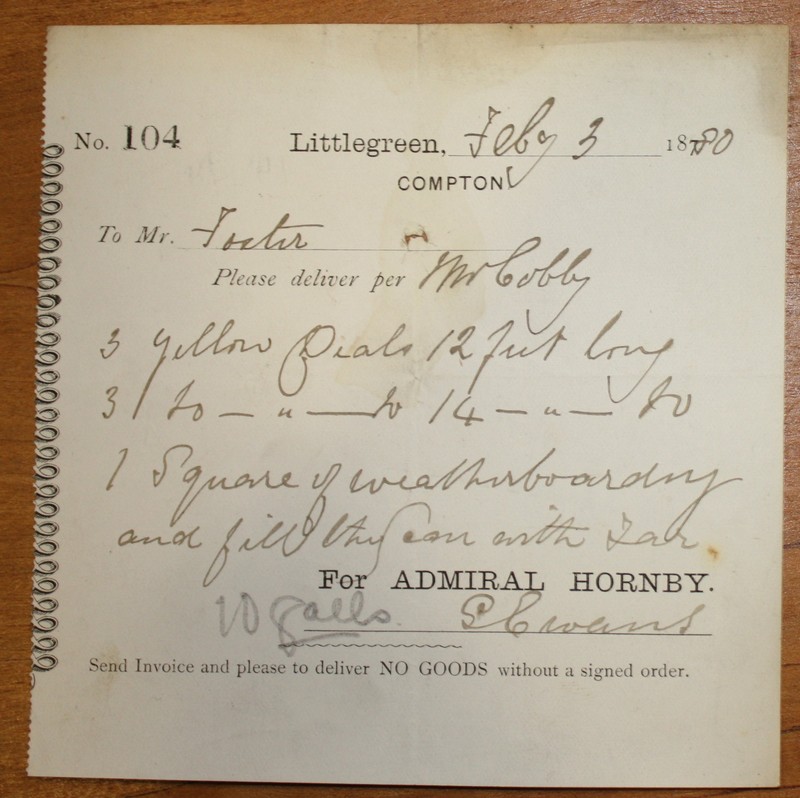 No. 104 Littlegreen, Feby 3 1880
COMPTON
To Mr. Foster
Please deliver per Mr Cobby
3 Yellow Deals 12 feet long
3 do — " — do 14 — " — do
1 Square of weatherboarding
and fill the Can with Tar
For ADMIRAL HORNBY.
10 galls. Evans
Send Invoice and please to deliver NO GOODS without a signed order.